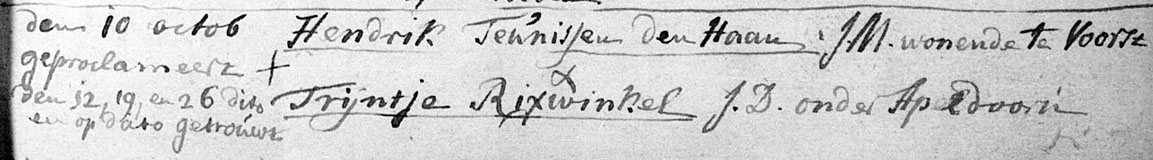 den 10 octob Hendrik Teunissen den Haan, JM. wonende te Voorst
geproclameert +
den 12, 19, en 26 dito Trijntje Rixwinkel J. D. onder Apeldoorn
en op dato getrouwt